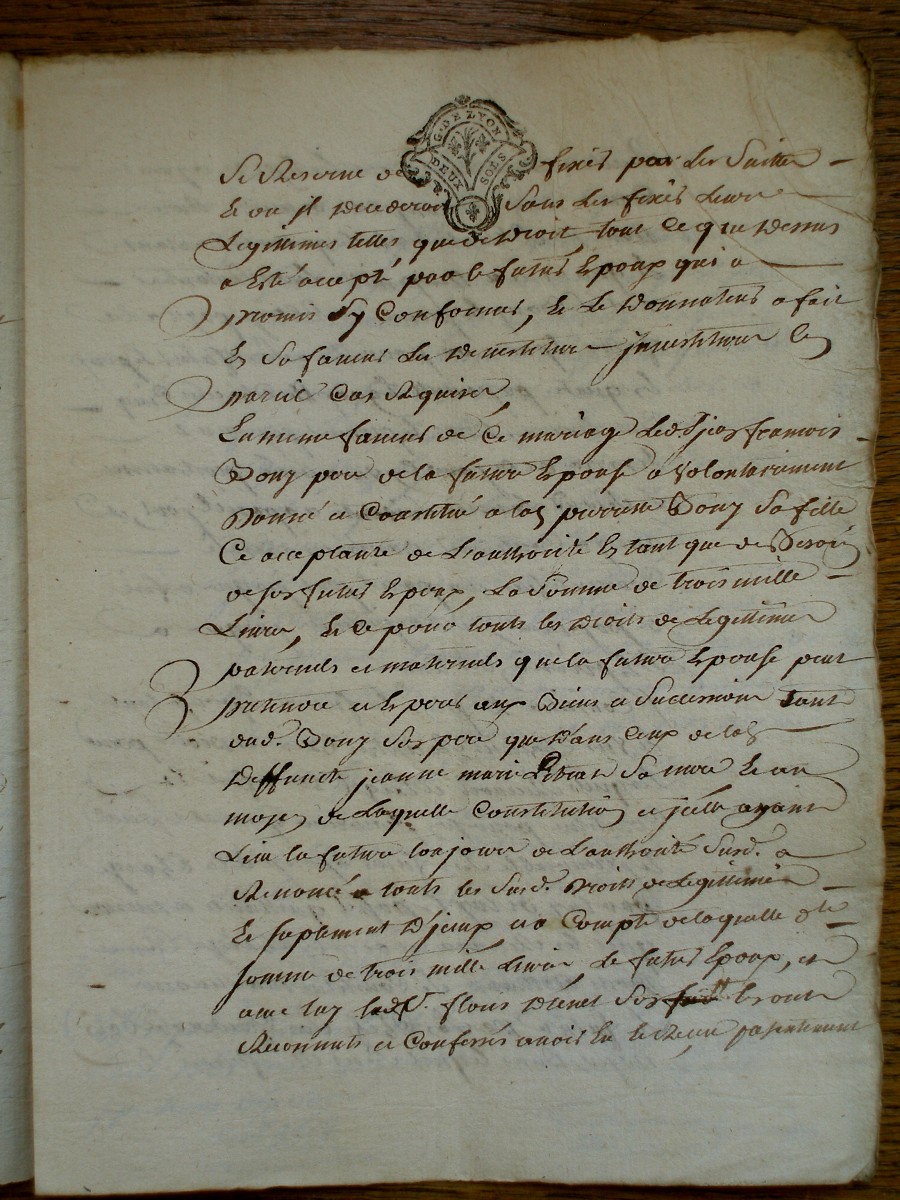 G. DE LYON
DEUX SOLS
Se Reserve de fixés par les suittes
Et ou il decederoit sans les fixés leurs
Legittimes telles que de Droit, tout Ce que Dessus
a Eté accepté par le futur Epoux qui a
promis sy Conformer, Et Le Donnateur a fait
En sa faveur les Devestiture investiture En
pareil Cas Requises,
En meme faveur de Ce mariage Led. Sieur françois
Bouy pere de la future Epouse a volontairement
Donné et Constitué a lad. pierrette Bouy sa fille
Ce acceptante de L'authorité En tant que de Besoin
de son futur Epoux, La somme de trois mille
Livres, Et Ce pour touts les Droits de Legittime
paternels et maternels que la future Epouse peut
pretendre et Esperer aux Biens et Successions tant
dud. Bouy son pere que Dans Ceux de lad.
Deffuncte jeanne marie sa mere Et au
moyen de Laquelle Constitution et jcelle ayant
Lieu la future toujours de L'authorité Susd. a
Renoncé a touts les Susd. Droits de Legittime
Et suplement D'jceux et a Compte de laquelle dte
somme de trois mille Livres, Le futur Epoux, et
avec luy led. Sr. son Et ont
Reconnuts et Confessés avoir Eu et Reçu presentement